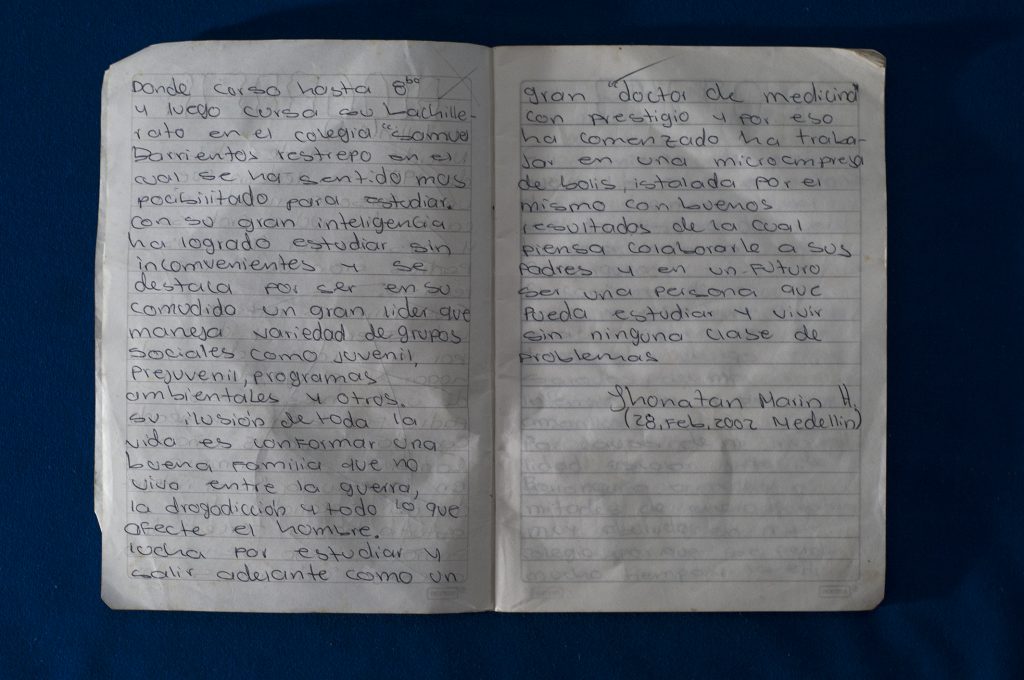 Donde curso hasta 8bo
y luego cursa su bachille-
rato en el colegia "Samuel
Barrientos restrepo en el
cual se ha sentido mas
pocibilitado para estudiar.
con su gran inteligencia
ha logrado estudiar sin
incomvenientes y se
destaca por ser en su
comudido un gran lider que
maneja variedad de grupos
sociales como juvenil,
prejuvenil, programas
ambientales y otros.
su ilusión de toda la
vida es conformar una
buena familia que no
viva entre la guerra,
la drogadicción y todo lo que
afecte el hombre.
lucha por estudiar y
salir adelante como un
gran "doctor de medicina"
con prestigio y por eso
ha comenzado ha traba-
jar en una microempresa
de bolis, istalada por el
mismo con buenos
resultados de la cual
piensa colaborarle a sus
padres y en un futuro
ser una persona que
pueda estudiar y vivir
sin ninguna clase de
problemas
Jhonatan Marin H.
(28, Feb, 2002 Medellin)